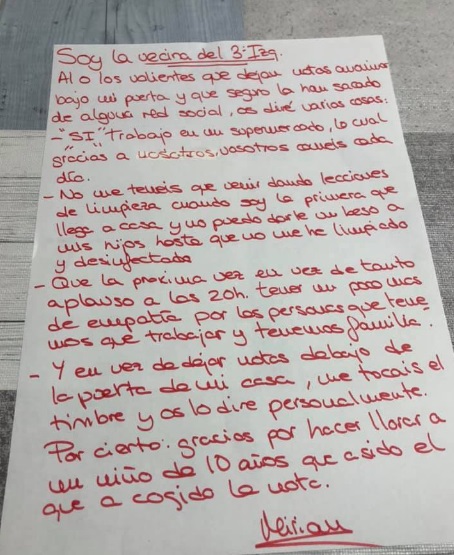 Soy la vecina del 3º Izq.
Al o los valientes que dejan notas anonimas
bajo mi puerta y que seguro la han sacado
de alguna red social, os diré varias cosas:
- "SI" trabajo en un supermercado, lo cual
gracias a nosotros, vosotros comeis cada
dia.
- No me teneis que venir dando lecciones
de limpieza cuando soy la primera que
llega a casa y no puedo darle un beso a
mis hijos hasta que no me he limpiado
y desinfectado
- Que la proxima vez en vez de tanto
aplauso a las 20h. tener un poco mas
de empatia por las personas que tene
mos que trabajar y tenemos familia.
- Y en vez de dejar notas debajo de
la puerta de mi casa, me tocais el
timbre y os lo dire personalmente.
Por cierto: gracias por hacer llorar a
un niño de 10 años que a sido el
que a cogido la nota.
Mirian